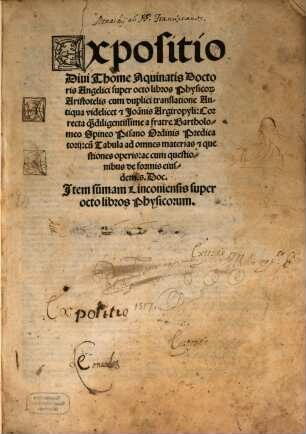 Expositio
Diui Thome Aquinatis Docto
ris Angelici super octo libros Physicoꝝ
Aristotelis cum duplici translatione An
tiqua videlicet ⁊ Joānis Argiropyli: Cor
recta q̄ȝdiligentissime a fratre Bartholo
meo Spineo Pisano Ordinis Predica
toriȝ: cū Tabula ad omnes materias ⁊ que
stiones operis: ac cum questio
nibus de formis eius
dem S. Doc.
Item sūmam Linconiensis super
octo libros Physicorum.
Expositio 1517